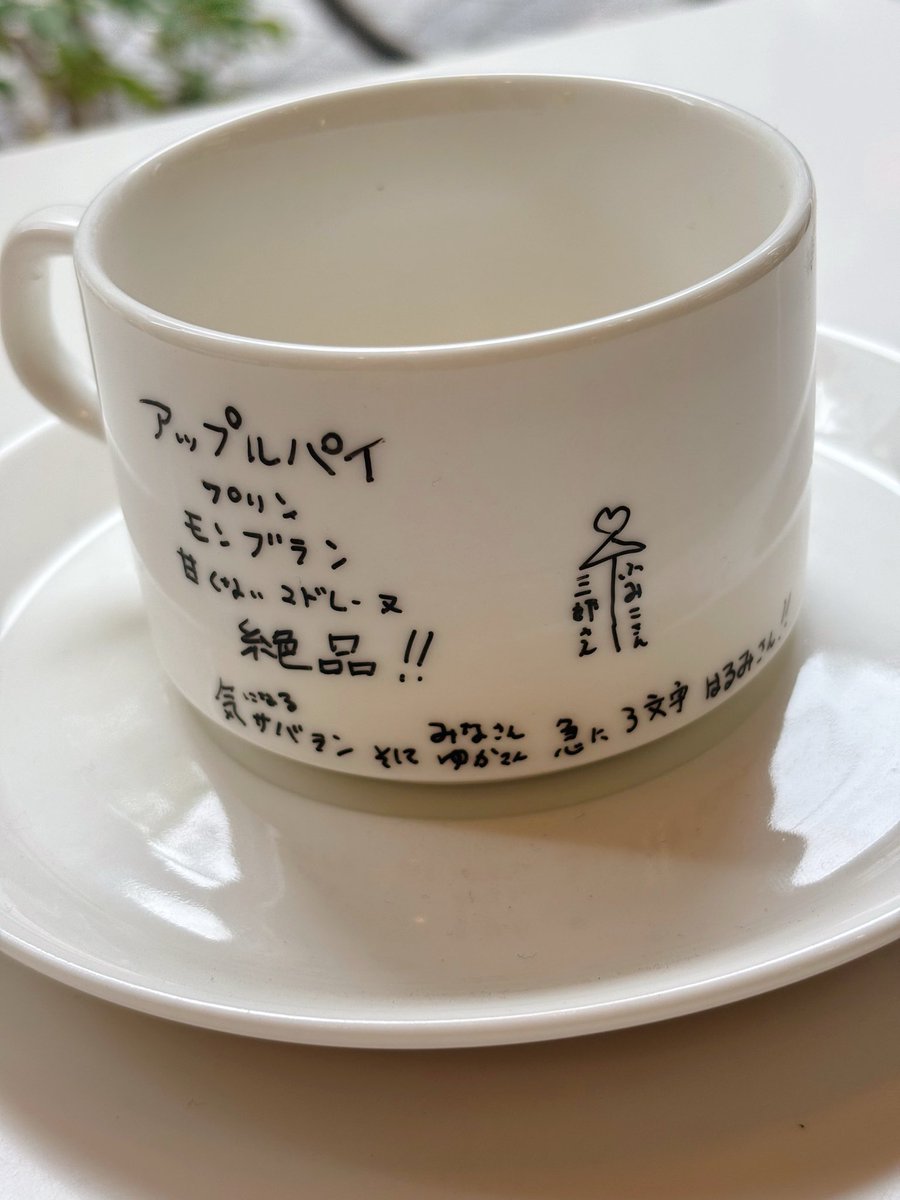 アップルパイ
プリン
モンブラン
甘くないマドレーヌ
絶品!!
気になる
サバラン
そして
みなさん
ゆかさん
急に3文字 はるみさん!!
ふみこさん
三郎さん